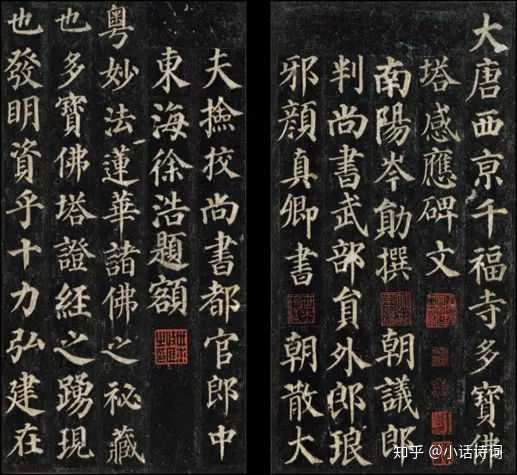 大唐西京千福寺多寶佛
塔感應碑文
南陽岑勛撰朝議郎
判尚書武部員外郎琅
邪顏真卿書朝散大
夫撿挍尚書都官郎中
東海徐浩題額
粵妙法蓮華諸佛之祕藏
也多寶佛塔證經之踴現
也發明資乎十力弘建在
知乎 @小话诗词